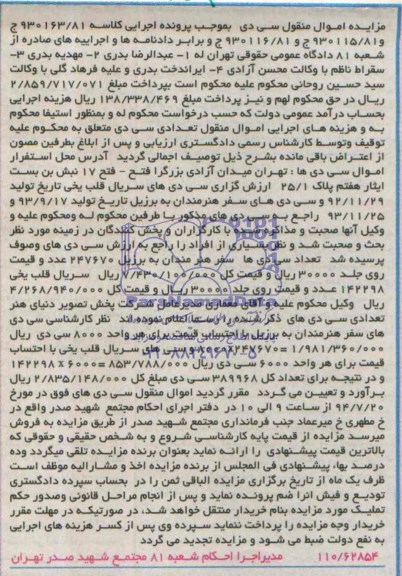 مزایده اموال منقول سی دی بموجب پرونده اجرایی کلاسه ۹۳۰۱۶۳/۸۱ ج
و۹۳۰۱۱۵/۸۱ ج و ۹۳۰۱۱۶/۸۱ ج و برابر دادنامه ها و اجراییه های صادره از
شعبه ۸۱ دادگاه عمومی حقوقی تهران له ۱- عبدالرضا بدری ۲- مهدیه بدری ۳-
سقراط ناظم با وکالت محسن آزادی ۴- ایراندخت بدری و علیه فرهاد گلی با وکالت
سید حسین روحانی محکوم علیه محکوم است بپرداخت مبلغ ۲/۸۵۹/۷۱۷/۰۷۱
ریال در حق محکوم لهم و نیز پرداخت مبلغ ۱۳۸/۳۳۸/۴۶۹ ریال هزینه اجرایی
بحساب درآمد عمومی دولت که حسب درخواست محکوم له و بمنظور استیفا محکوم
به و هزینه های اجرایی اموال منقول تعدادی سی دی متعلق به محکوم علیه
توقیف وتوسط کارشناس رسمی دادگستری ارزیابی و پس از ابلاغ بطرفین مصون
از اعتراض باقی مانده بشرح ذیل توصیف اجمالی گردید آدرس محل استقرار
اموال سی دی ها : تهران میدان آزادی بزرگراه فتح - فتح ۱۷ نبش بن بست
ایثار هفتم پلاک ۲۵/۱ ارزش گزاری سی دی های سریال قلب یخی تاریخ تولید
۹۲/۱۱/۲۹ و سی دی های سفر هنرمندان به برزیل تاریخ تولید ۹۳/۹/۱۷ و
۹۳/۱۱/۲۵ راجع به سی دی های مذکور با طرفین محکوم له ومحکوم علیه و
وکیل آنها صحبت و مذاکره شد با کارگزاران و پخش کنندگان در زمینه مورد نظر
بحث و صحبت شد و نظر بسیاری از افراد را راجع به ارزش سی دی های وصوف
پرسیده شد تعداد سی دی ها سفر هنر مندان به برزیل ۲۴۷۶۷۰ عدد و قیمت
روی جلد ۳۰۰۰۰ ریال و قیمت کل ۷/۴۳۰/۱۰۰/۰۰۰ ریال سریال قلب یخی
۱۴۲۲۹۸ عدد و قیمت روی جلد ۳۰۰۰۰ ریال و قیمت کل ۴/۲۶۸/۹۴۰/۰۰۰
ریال وکیل محکوم علیه و آقای معماری مدیرعامل شرکت پخش تصویر دنیای هنر
تعدادی سی دی های ذکر شده را رسما اعلام نموده اند نظر کارشناسی سی دی
های سفر هنرمندان به برزیل با احتساب قیمت برای هر واحد ۸۰۰۰ سی دی ریال
۱/۹۸۱/۳۶۰/۰۰۰ =۲۴۷۶۷۰x های سریال قلب یخی با احتساب
قیمت برای هر واحد ۶۰۰۰ سی دی ریال ۸۵۳/۷۸۸/۰۰۰=۶۰۰۰ x ۱۴۲۲۹۸
و در نتیجه برای تعداد کل ۳۸۹۹۶۸ سی دی مبلغ کل ۲/۸۳۵/۱۴۸/۰۰۰ ریال
برآورد و تعیین می گردد مقرر گردید اموال منقول سی دی های فوق در مورخ
۹۴/۷/۲۰ از ساعت ۹ الی ۱۰ در دفتر اجرای احکام مجتمع شهید صدر واقع در
خ مطهری خ میرعماد جنب فرمانداری مجتمع شهید صدر از طریق مزایده به فروش
میرسد مزایده از قیمت پایه کارشناسی شروع و به شخص حقیقی و حقوقی که
بالاترین قیمت پیشنهادی را ارائه نماید بعنوان برنده مزایده تلقی میگردد وده
درصد بها، پیشنهادی فی المجلس از برنده مزایده اخذ و مشارالیه موظف است
ظرف یک ماه از تاریخ برگزاری مزایده الباقی ثمن را در بحساب سپرده دادگستری
تودیع و فیش انرا ضم پرونده نماید و پس از انجام مراحل قانونی وصدور حکم
تملیک مورد مزایده بنام خریدار منتقل خواهد شد، در صورتیکه در مهلت مقرر
خریدار وجه مزایده را پرداخت ننماید سپرده وی پس از کسر هزینه های اجرایی
به نفع دولت ضبط می شود و مزایده تجدید می گردد
۱۱۰/۶۲۸۵۴ مدیراجرا احکام شعبه ۸۱ مجتمع شهید صدر تهران